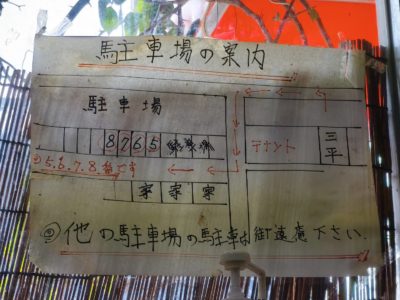 駐車場の案内
駐車場
8765
テナント
三平
②5.6.7.8番です
家家家
②他の駐車場の駐車は御遠慮下さい